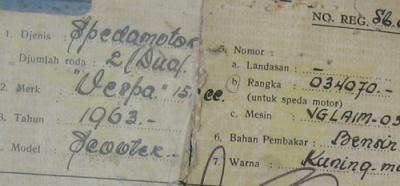 NO. REG.
1. Djenis : Spedamotor
Djumlah roda : 2 (Dua).
2. Merk : "Vespa." 15 cc.
3. Tahun : 1963.-
Model : Scooter.-
5. Nomor :
a. Landasan : -
b) Rangka : 034070.-
(untuk speda motor)
c. Mesin : VGLAIM-03
6. Bahan Pembakar : Bensin
7. Warna : Kuning-m